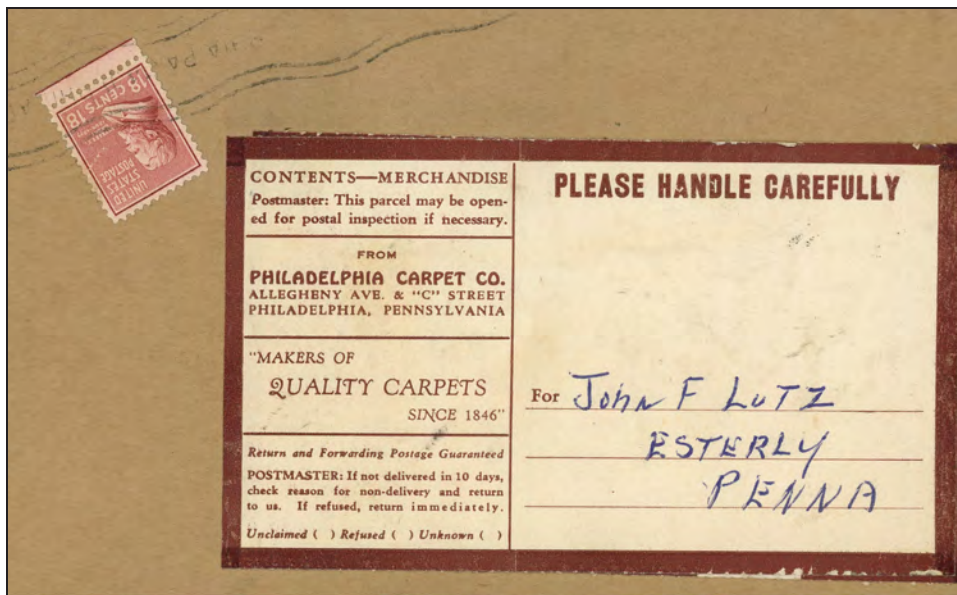 18 CENTS 18
UNITED
STATES
POSTAGE
CONTENTS—MERCHANDISE
Postmaster: This parcel may be open-
ed for postal inspection if necessary.
FROM
PHILADELPHIA CARPET CO.
ALLEGHENY AVE. & "C" STREET
PHILADELPHIA, PENNSYLVANIA
"MAKERS OF
QUALITY CARPETS
SINCE 1846"
Return and Forwarding Postage Guaranteed
POSTMASTER: If not delivered in 10 days,
check reason for non-delivery and return
to us. If refused, return immediately.
Unclaimed ( ) Refused ( ) Unknown ( )
PLEASE HANDLE CAREFULLY
For John F LUTZ
ESTERLY
PENNA